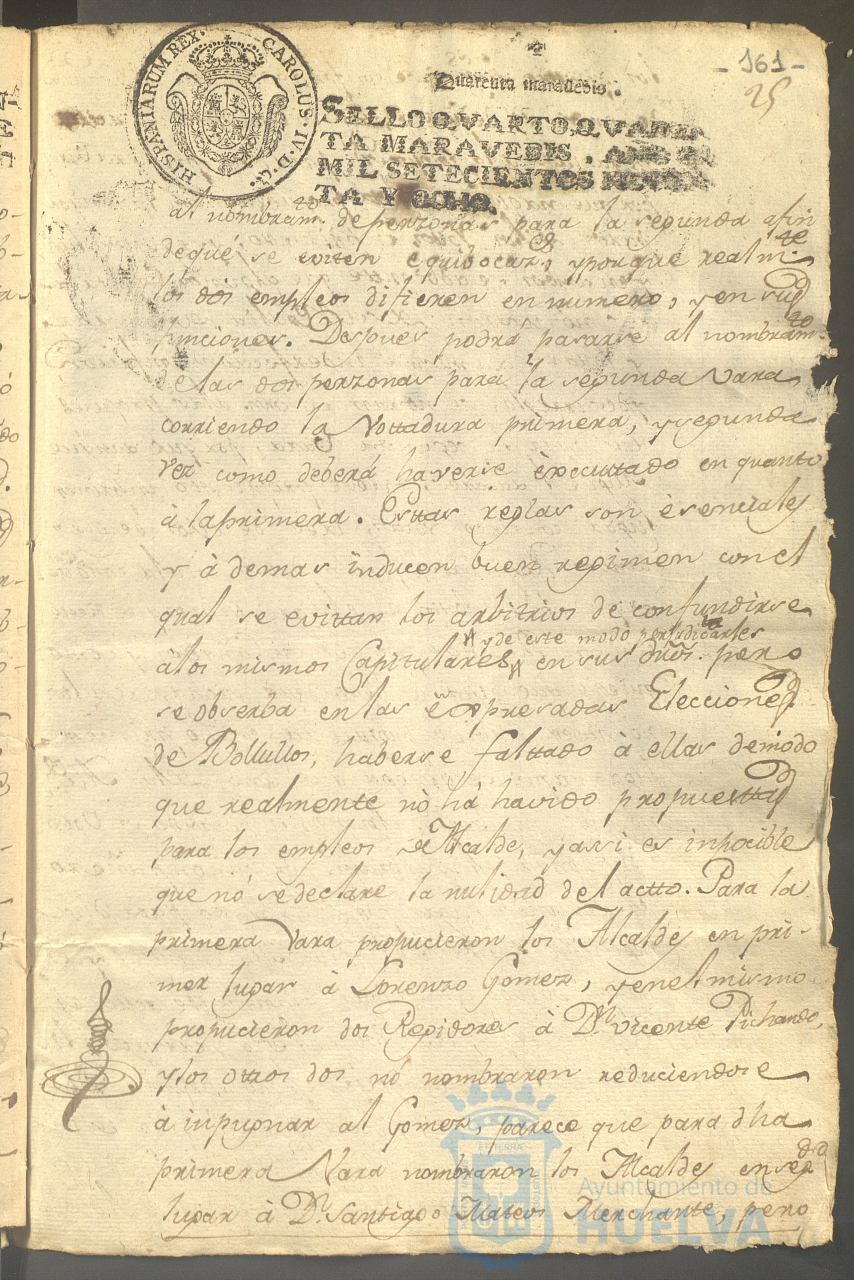 HISPANIARUM REX. CAROLUS. IV. D. G.
- 161 -
25
Quarenta maravedis.
SELLO QVARTO, QVAREN
TA MARAVEDIS, AÑO
MIL SETECIENTOS NOVEN
TA Y OCHO.
al nombram.to de perzonas para la segunda afin
dequé se eviten equibocaz.s, yporque realm.te
los dos empleos difieren en numero, y en sus
funciones. Despues podrá pasarse al nombram.to
de las dos perzonas para la segunda Vara
corriendo la Vottadura primera, y segunda
vez como deberá haverse èxecuttado en quanto
à laprimera. Esttas reglas son èsenciales
y à demas inducen buen regimen con el
qual se evittan los arbitrios de confundirse
y de este modo perjudicarles
àlos mismos Capitulares en sus dros. pero
se observa en las expresadas Elecciones
de Bollullos, haberse falttado à ellas demodo
que realmente nò há havido propuesttas
para los empleos de Alcalde, yasi es inpocible
que nó sedeclare la nulidad del actto. Para la
primera Vara propucieron los Alcaldes en pri-
mer lugar à Lorenzo Gomez, yenelmismo
propucieron dos Regidores à D.n Vicente Pichardo,
ylos ottros dos nó nombraron reduciendose
à inpugnar al Gomez, parece que para dha
primera Vara nombraron los Alcaldes en seg.do
lugar à D.n Santiago Mateos Merchante, pero
Ayuntamiento de
HUELVA